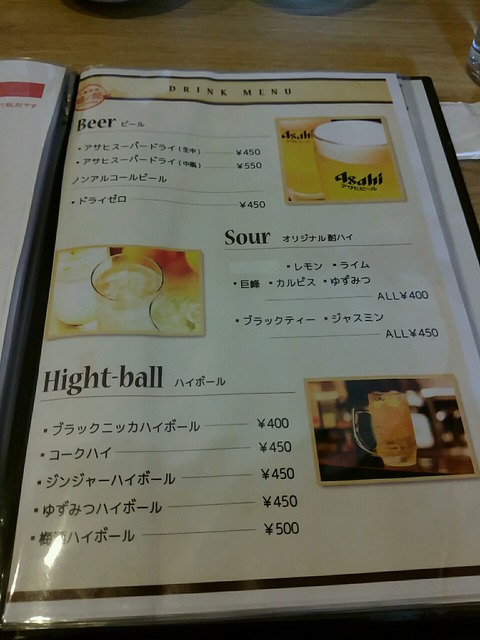 DRINK MENU
Beer ビール
・アサヒスーパードライ(生中) ¥450
・アサヒスーパードライ(中瓶) ¥550
ノンアルコールビール
・ドライゼロ ¥450
Asahi
Asahi
アサヒビール
Sour オリジナル酎ハイ
・レモン ・ライム
・巨峰 ・カルピス ・ゆずみつ
ALL¥400
・ブラックティー ・ジャスミン
ALL¥450
Hight-ball ハイボール
・ブラックニッカハイボール ¥400
・コークハイ ¥450
・ジンジャーハイボール ¥450
・ゆずみつハイボール ¥450
・梅酒ハイボール ¥500